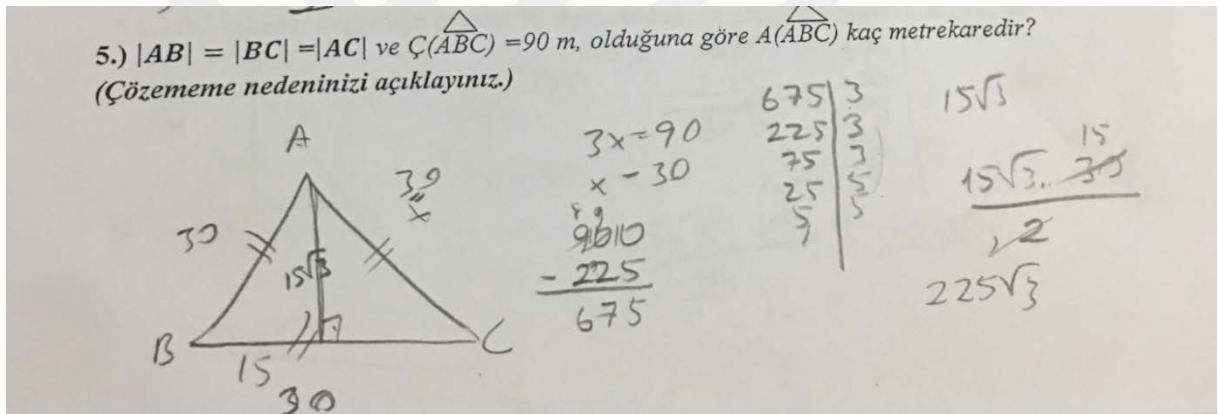 5.) |AB| = |BC| =|AC| ve Ç(ABC) =90 m, olduğuna göre A(ABC) kaç metrekaredir?
(Çözememe nedeninizi açıklayınız.)
A
30
30
x
15√3
B
C
15
30
3x=90
x - 30
900
- 225
675
675 | 3
225 | 3
75 | 3
25 | 5
5 | 5
1
15√3
15
15√3 . 30
2
225√3